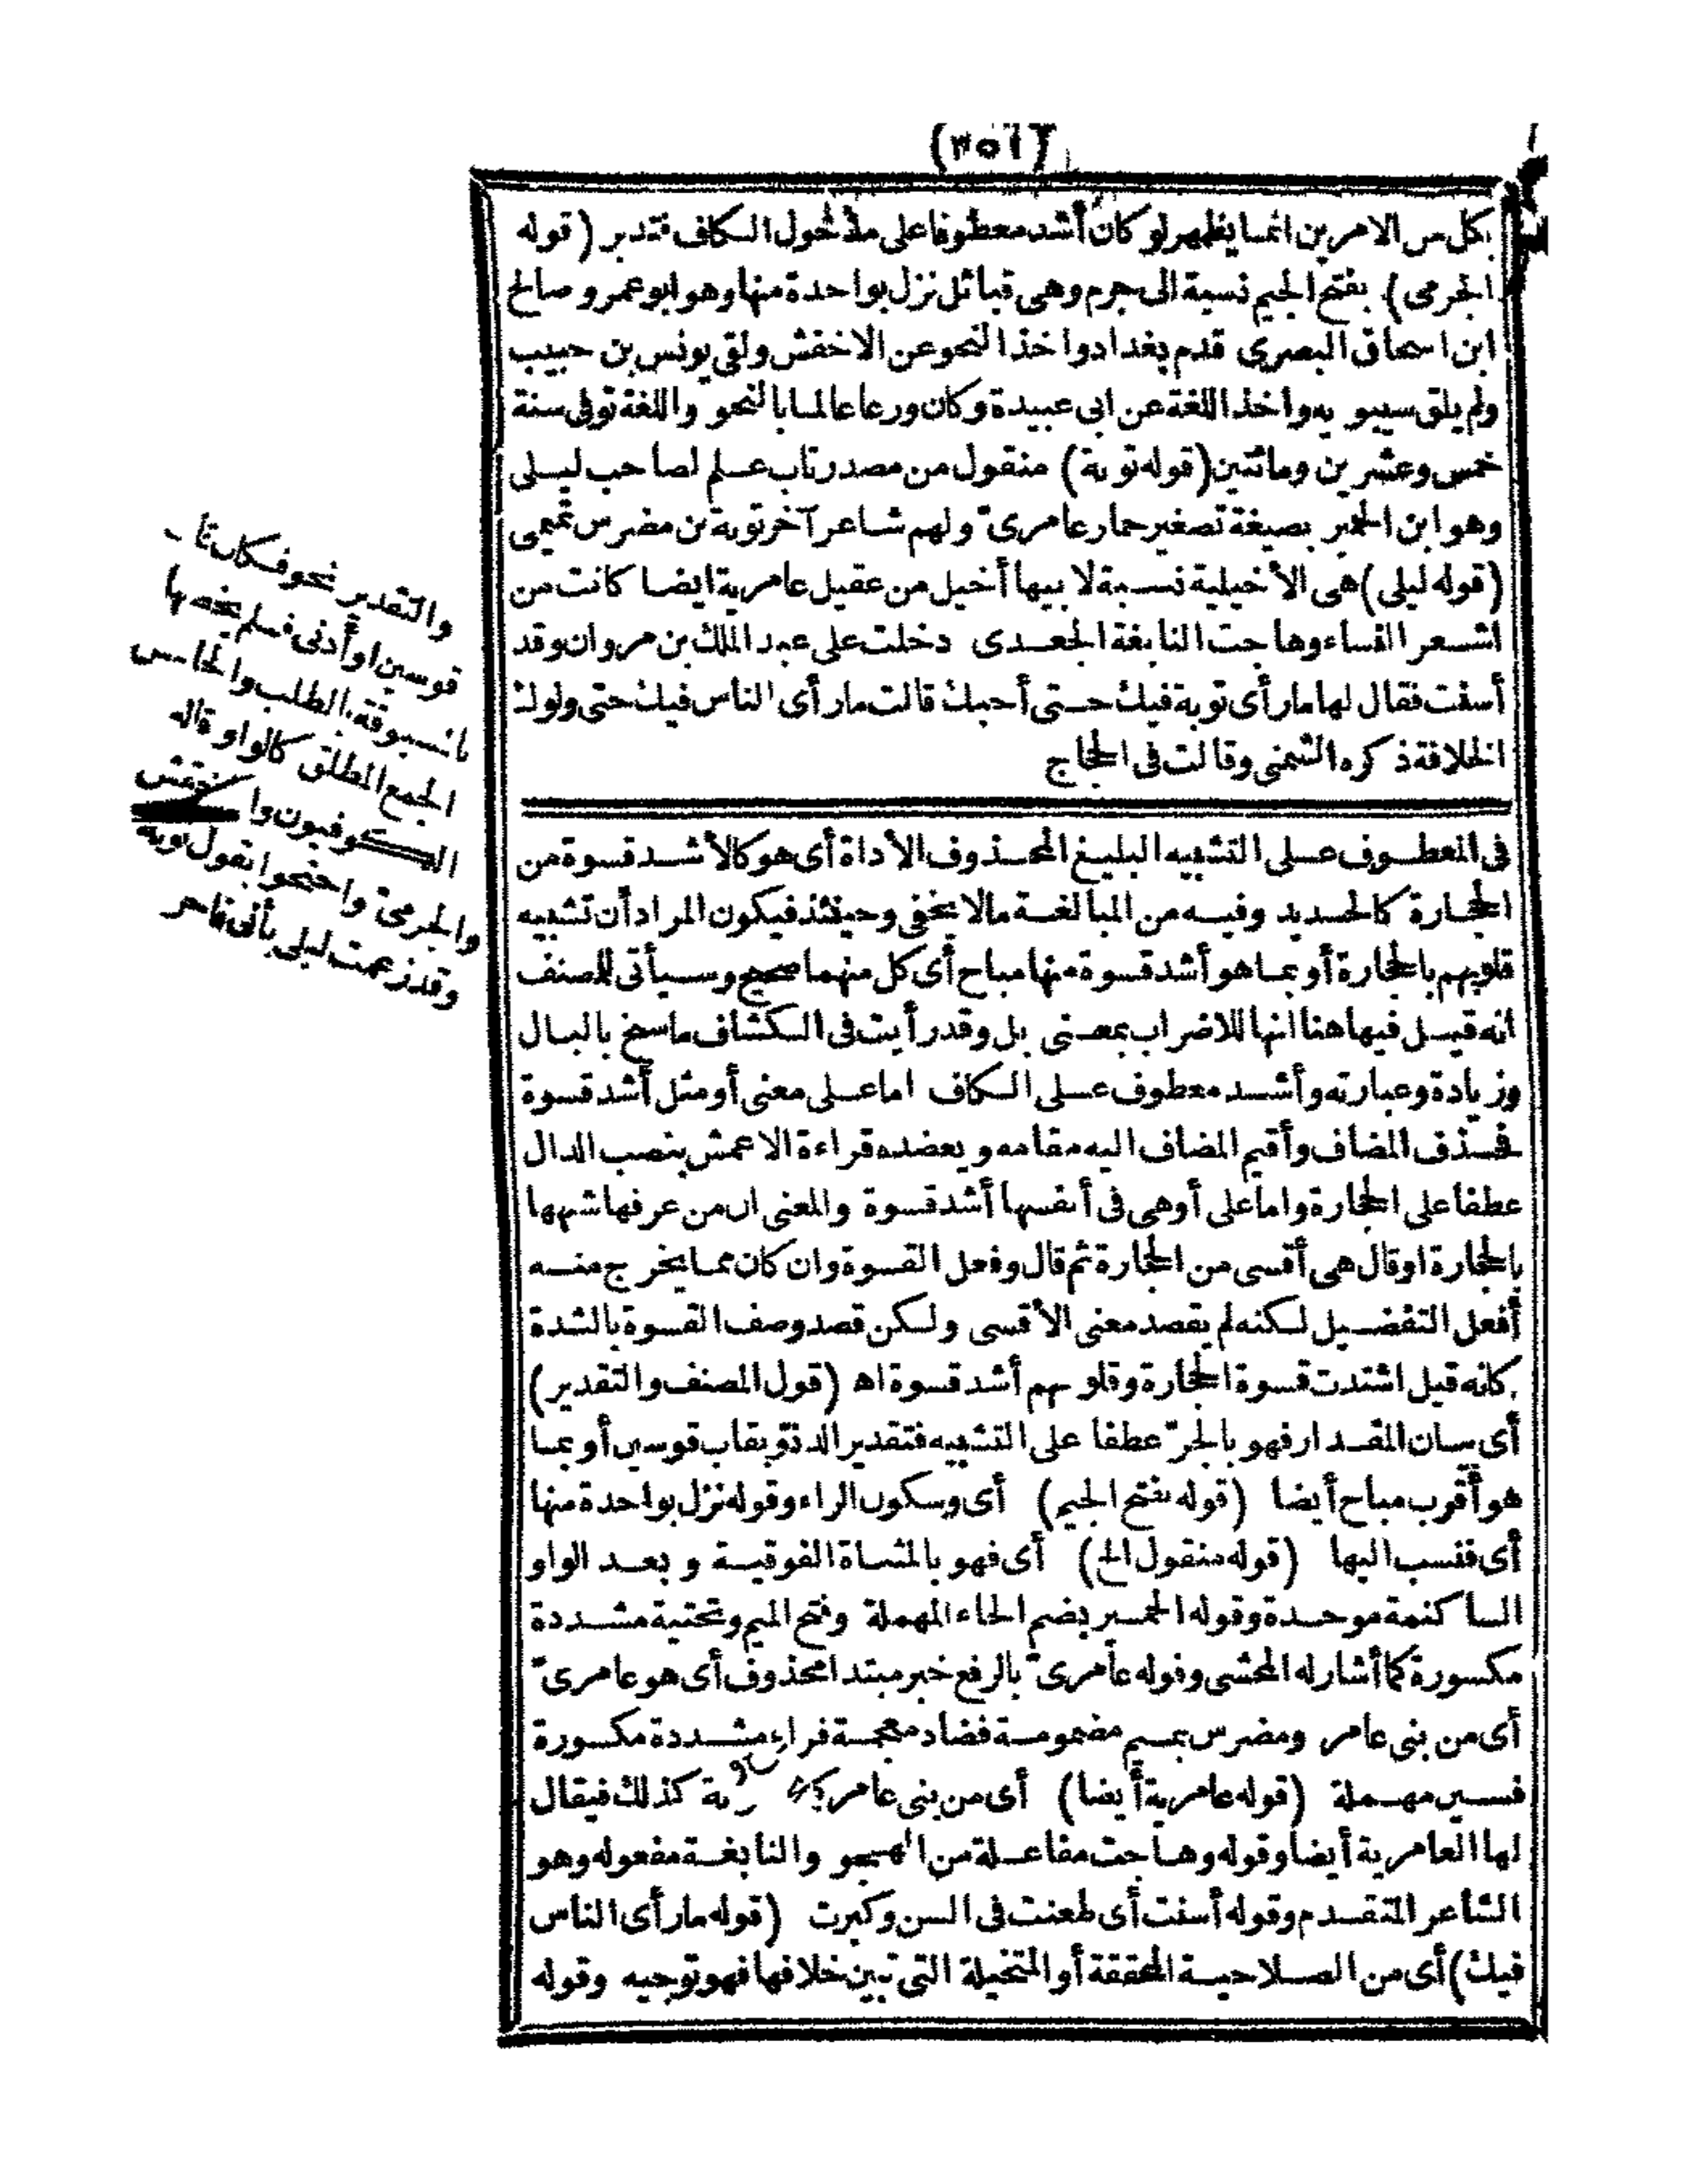 (٣٥١)
بكل من الامرين انما يظهر لو كان أشد معطوفا على مدخول الكاف فتدبر (قوله
الجرمى) بفتح الجيم نسبة الى جرم وهى قبائل نزل بواحدة منها وهو ابو عمرو صالح
ابن اسحاق البصرى قدم بغداد واخذ النحو عن الاخفش ولقى يونس بن حبيب
ولم يلق سيبويه واخذ اللغة عن ابى عبيدة وكان ورعا عالما بالنحو واللغة توفى سنة
خمس وعشرين ومائتين (قوله توبة) منقول من مصدر تاب علم لصاحب ليلى
وهو ابن الحمير بصيغة تصغير حمار عامرىّ ولهم شاعر آخر توبة بن مضرس تميمى
(قوله ليلى) هى الأخيلية نسبة لابيها أخيل من عقيل عامرية ايضا كانت من
اشعر النساء وهاجت النابغة الجعدى دخلت على عبد الملك بن مروان وقد
أسنت فقال لها ما رأى توبة فيك حتى أحبك قالت ما رأى الناس فيك حتى ولوك
الخلافة ذكره الشمنى وقالت فى الحجاج
فى المعطوف على التشبيه البليغ المحذوف الأداة أى هو كالأشد قسوة من
الحجارة كالحديد وفيه من المبالغة مالا يخفى وحينئذ فيكون المراد أن تشبيه
قلوبهم بالحجارة أو بما هو أشد قسوة منها مباح أى كل منهما صحيح وسيأتى للمصنف
انه قيل فيها هنا انها للاضراب بمعنى بل وقد رأيت فى الكشاف ما سنح بالبال
وزيادة وعبارته وأشد معطوف على الكاف اما على معنى أو مثل أشد قسوة
فحذف المضاف وأقيم المضاف اليه مقامه ويعضده قراءة الاعمش بنصب الدال
عطفا على الحجارة واما على أو هى فى أنفسها أشد قسوة والمعنى ان من عرفها شبهها
بالحجارة او قال هى أقسى من الحجارة ثم قال وفعل القسوة وان كان مما يخرج منه
أفعل التفضيل لكنه لم يقصد معنى الأقسى ولكن قصد وصف القسوة بالشدة
كانه قيل اشتدت قسوة الحجارة وقلوبهم أشد قسوة اه (قول المصنف والتقدير)
أى بيان المقدار فهو بالجرّ عطفا على التشبيه فتقدير الدنوّ بقاب قوسين أو بما
هو أقرب مباح أيضا (قوله بفتح الجيم) أى وسكون الراء وقوله نزل بواحدة منها
أى فنسب اليها (قوله منقول الخ) أى فهو بالمثناة الفوقية وبعد الواو
الساكنة موحدة وقوله الحمير بضم الحاء المهملة وفتح الميم وتحتية مشددة
مكسورة كما أشار له المحشى وقوله عامرىّ بالرفع خبر مبتدا محذوف أى هو عامرىّ
أى من بنى عامر ومضرس بميم مضمومة فضاد معجمة فراء مشددة مكسورة
فسين مهملة (قوله عامرية أيضا) أى من بنى عامر كذلك فيقال
لها العامرية أيضا وقوله وهاجت مفاعلة من الهجو والنابغة مفعوله وهو
الشاعر المتقدم وقوله أسنت أى طعنت فى السن وكبرت (قوله ما رأى الناس
فيك) أى من الصلاحية المحققة أو المتخيلة التى تبين خلافها فهو توجيه وقوله
والتقدير نحو فكان قاب
قوسين او أدنى فلم يخصها
بالمسبوقة بالطلب والخامس
الجمع المطلق كالواو قاله
الكوفيون والاخفش
والجرمىّ واحتجوا بقول توبة
وقد زعمت ليلى بأنى فاجر